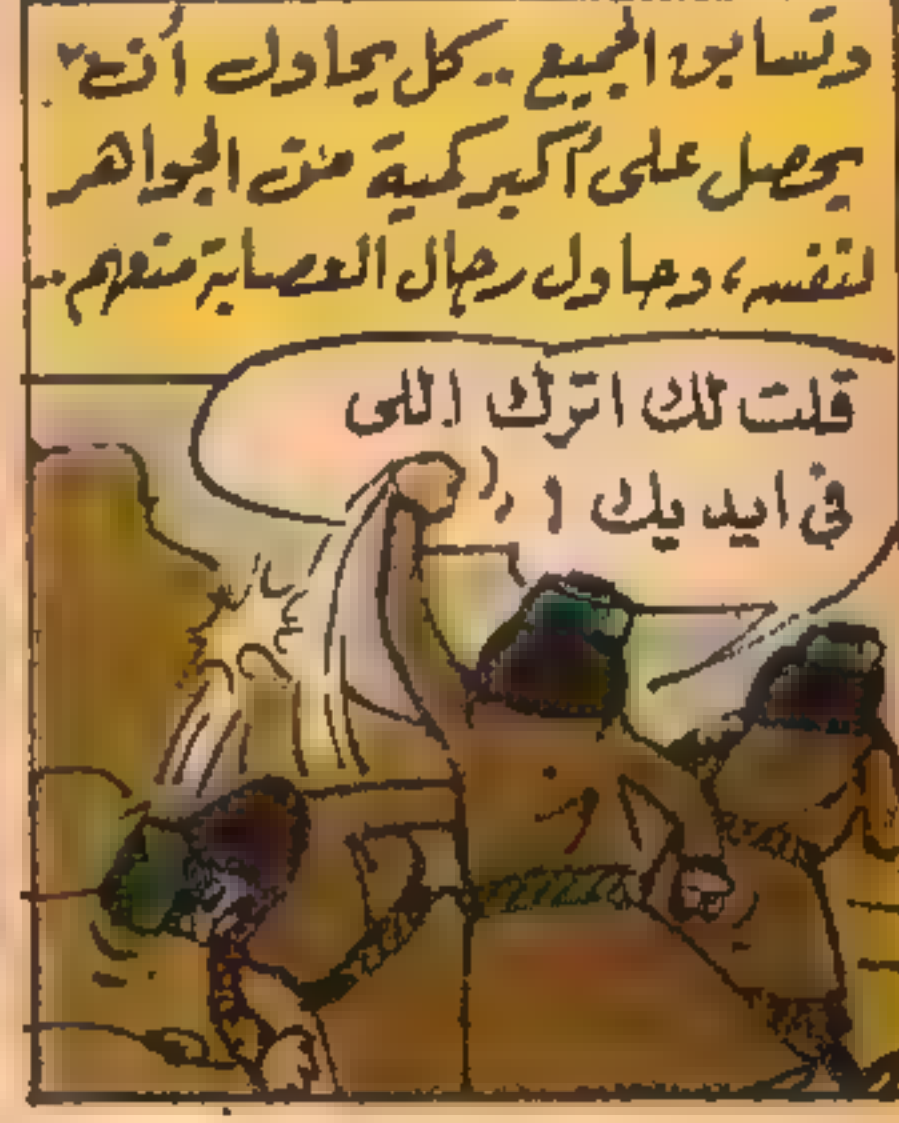 وتسابق الجميع .. كل يحاول أن
يحصل على أكبر كمية من الجواهر
لنفسه ، وحاول رجال العصابة منعهم ..
قلت لك اترك اللى
فى ايديك !